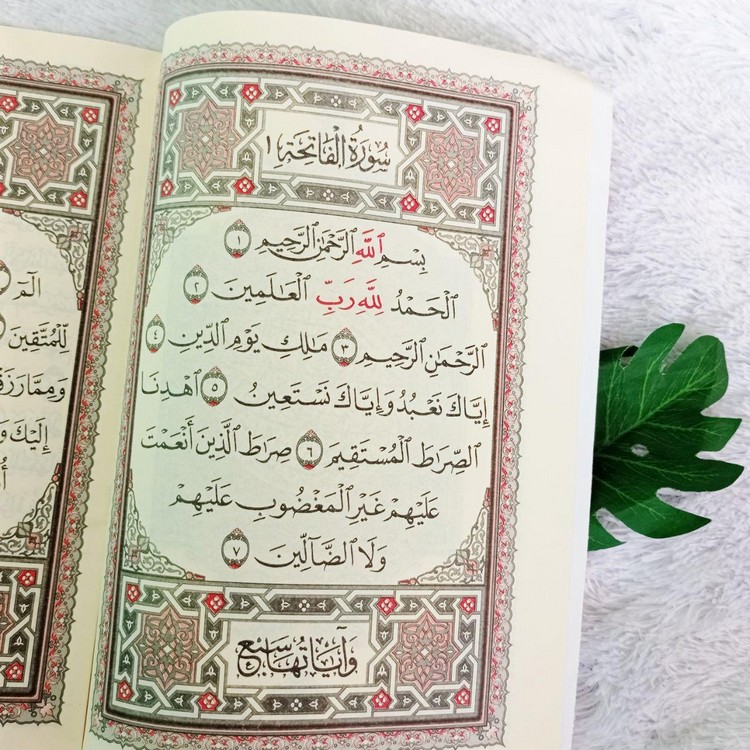 سُورَةُ ٱلْفَاتِحَةِ ١
بِسْمِ ٱللَّهِ ٱلرَّحْمَٰنِ ٱلرَّحِيمِ ١
ٱلْحَمْدُ لِلَّهِ رَبِّ ٱلْعَٰلَمِينَ ٢
ٱلرَّحْمَٰنِ ٱلرَّحِيمِ ٣ مَٰلِكِ يَوْمِ ٱلدِّينِ ٤
إِيَّاكَ نَعْبُدُ وَإِيَّاكَ نَسْتَعِينُ ٥ ٱهْدِنَا
ٱلصِّرَٰطَ ٱلْمُسْتَقِيمَ ٦ صِرَٰطَ ٱلَّذِينَ أَنْعَمْتَ
عَلَيْهِمْ غَيْرِ ٱلْمَغْضُوبِ عَلَيْهِمْ
وَلَا ٱلضَّآلِّينَ ٧
وَآيَاتُهَا سَبْعٌ
الٓمٓ
لِّلْمُتَّقِينَ
وَمِمَّا
إِلَيْكَ